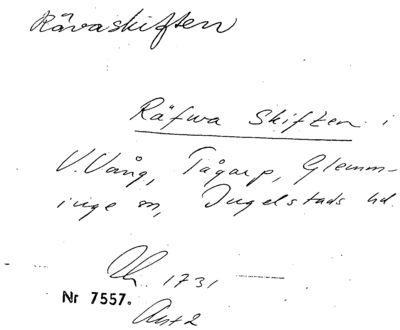 Rävaskiften
Räfwa Skiften i
V. Vång, Tågarp, Glemm-
inge sn, Ingelstads hd.
Lh. 1731
Nr 7557.
Akt 2